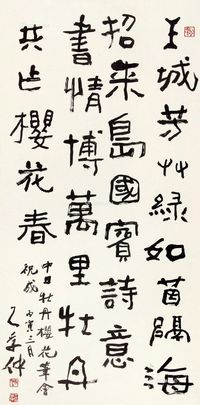 王城芳艸綠如茵隔海
招來島國賓詩意
書情博萬里牡丹
共占櫻花春
中日牡丹櫻花筆會
祝成
丙寅三月